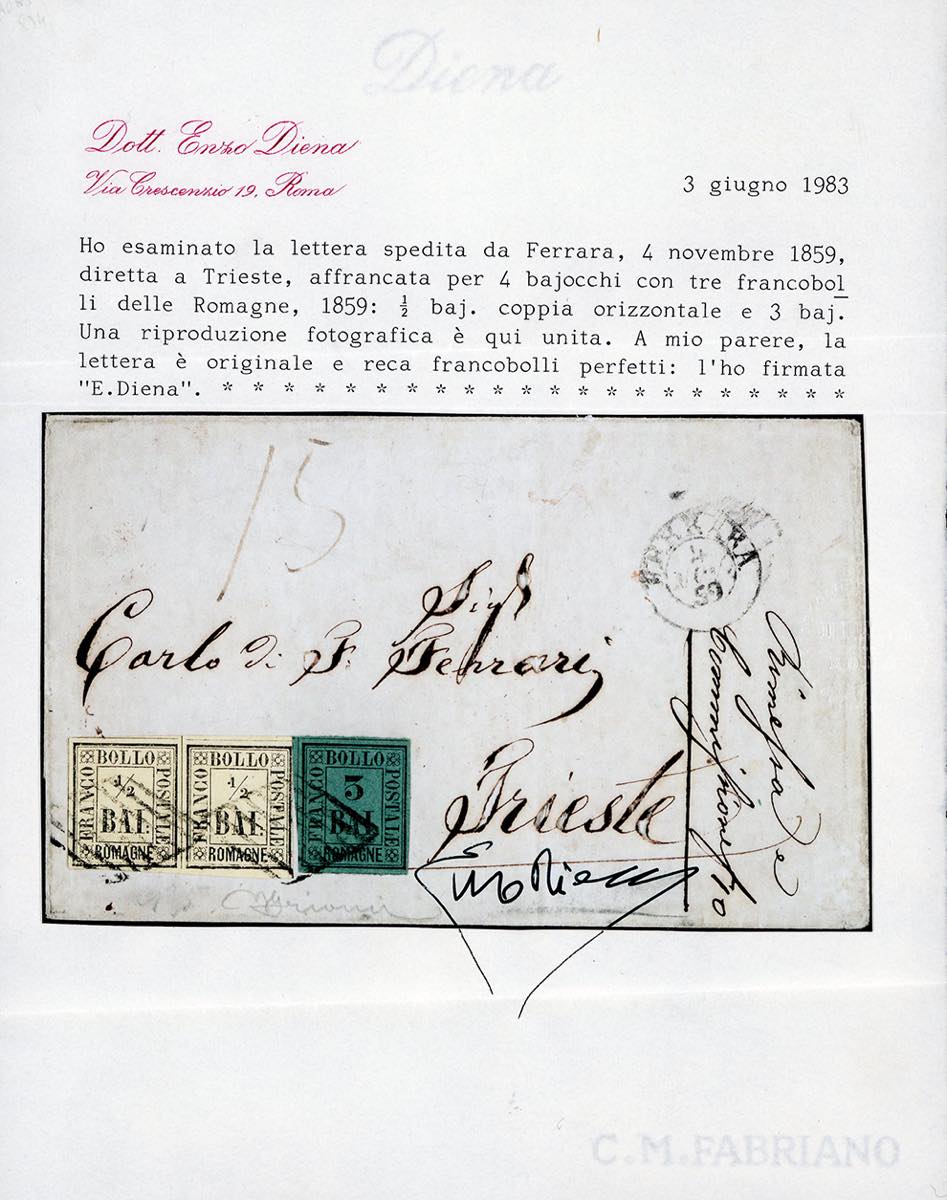 Diena
Dott. Enzo Diena
Via Crescenzio 19, Roma
3 giugno 1983
Ho esaminato la lettera spedita da Ferrara, 4 novembre 1859,
diretta a Trieste, affrancata per 4 bajocchi con tre francobol
li delle Romagne, 1859: ½ baj. coppia orizzontale e 3 baj.
Una riproduzione fotografica è qui unita. A mio parere, la
lettera è originale e reca francobolli perfetti: l'ho firmata
"E.Diena". * * * * * * * * * * * * * * * * * * * * *
15
FERRARA
4
59
Sigr
Carlo di F. Ferrari
Trieste
FRANCO BOLLO POSTALE
1/2
BAI.
ROMAGNE
FRANCO BOLLO POSTALE
1/2
BAI.
ROMAGNE
FRANCO BOLLO POSTALE
3
BAI.
ROMAGNE
Enzo Diena
C.M.FABRIANO